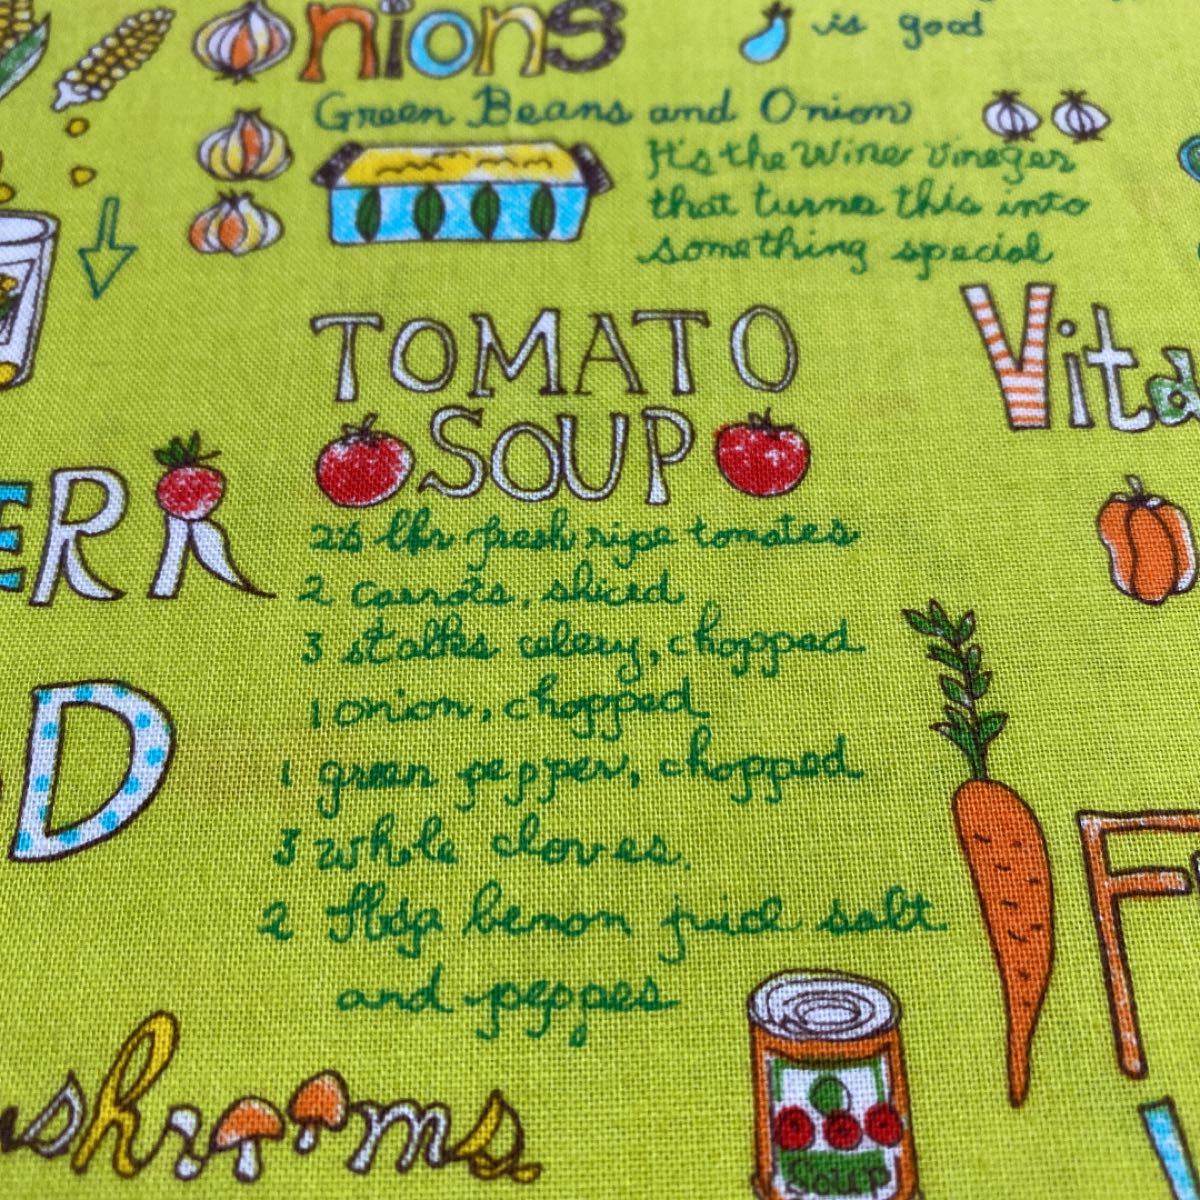 Onions
is good
Green Beans and Onion
It's the Wine Vineger
that turns this into
something special
TOMATO
SOUP
Vita
ER R
2½ lbs fresh ripe tomatoes
2 carrots, sliced
3 stalks celery, chopped
1 onion, chopped
1 green pepper, chopped
D
3 whole cloves.
F
2 tbsp lemon juice salt
and pepper
ushrooms
Soup